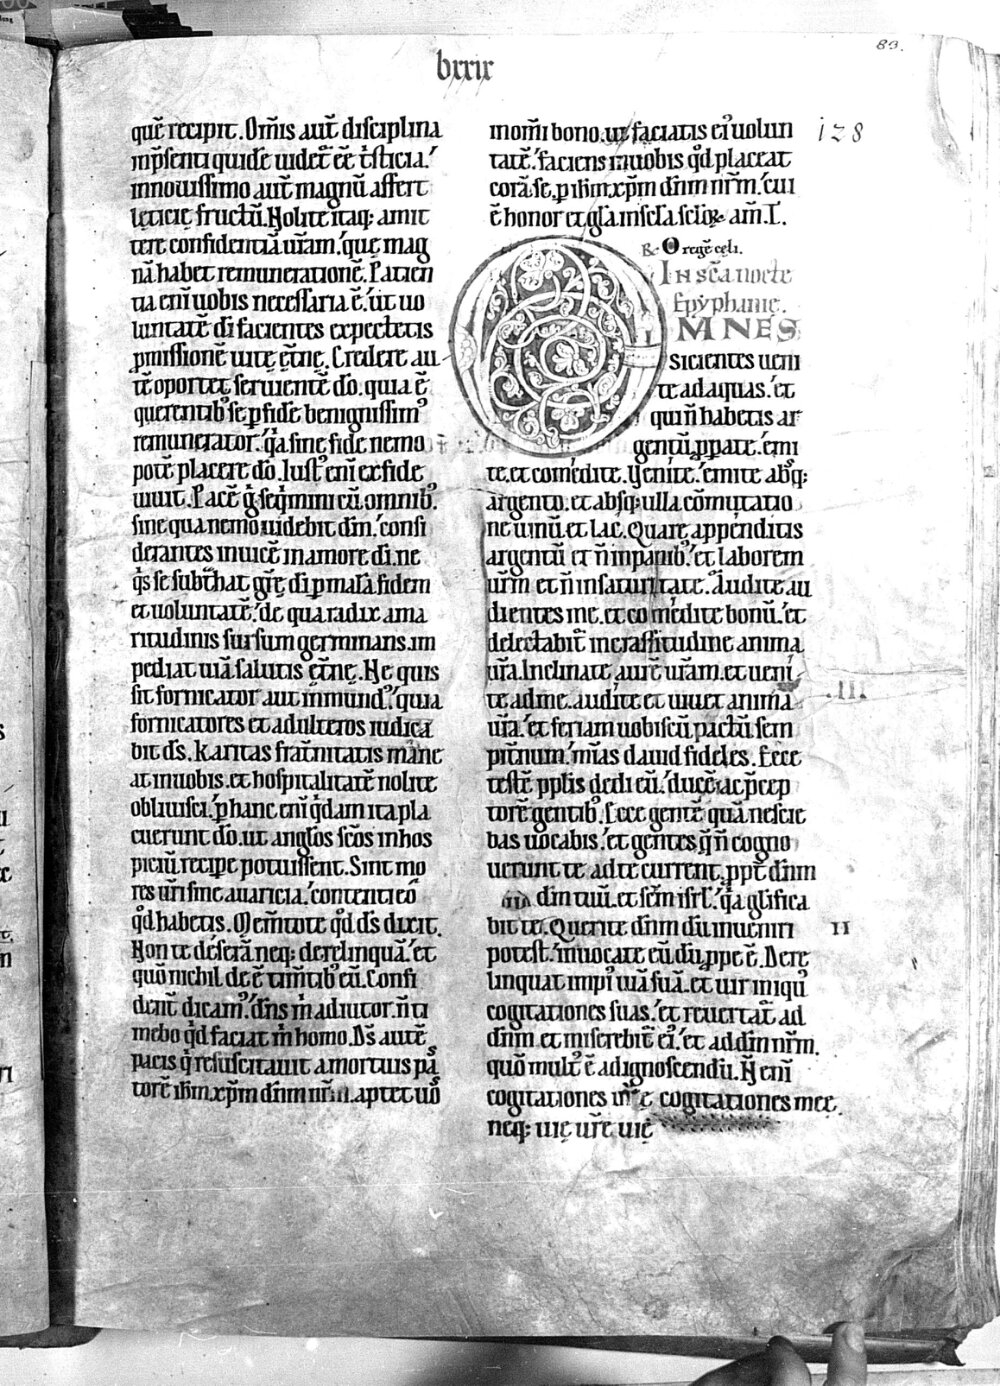 lxxxix
83.
quē recipit. Om̄is aut̄ disciplina
inp̄senti quidē uidet̄ eē t̄sticia.
innouissimo aut̄ magnū affert
lęticię fructū. Nolite itaq; amit
tere confidentiā ur̄am. quę mag
nā habet remunerationē. Patien
tia enī uobis necessaria ē. ut uo
luntatē di facientes expectetis
p̄missionē uitę et̄nę. Credere au
tē oportet seruientē dō. quia ē
querentib; se p̄ fidē benignissim᷒
remunerator. qa sine fide nemo
potē placere dō. Iust᷒ enī ex fide
uiuit. Pacē g̊ seq̄mini cū omnib;
sine qua nemo uidebit dm̄. consi
derantes inuicē in amore di. ne
q̄s se subt̄hat gr̄ę di p̄ malā fidem
et uoluntatē. de qua radix ama
ritudinis sursum germinans. im
pediat uiā salutis et̄nę. Ne quis
sit fornicator aut inmund᷒. quia
fornicatores et adulteros iudica
bit ds̄. Karitas frat̄nitatis mane
at in uobis. et hospitalitatē nolite
obliuisci. p̄ hanc enī q̄dam ita pla
cuerunt dō. ut angl̄os sc̄os in hos
piciū recipe potuissent. Sint mo
res ur̄i sine auaricia. contenti eō
qd̄ habetis. Mem̄tote qd̄ ds̄ dixit.
Non te deserā neq; derelinquā. et
quō nichil deē t̄mtib; eū. Confi
dent̄ dicam᷒. dn̄s m̄ adiutor. n̄ ti
mebo qd̄ faciat m̄ homo. Ds̄ autē
pacis q̄ resuscitauit a mortuis pas
torē ih̄m xp̄m dn̄m nr̄m. aptet uo
inom̄i bono. ut faciatis ei᷒ uolun
128
tatē. faciens in uobis qd̄ placeat
corā se. p ih̄m xp̄m dn̄m nr̄m. cui
ē honor et gl̄a in scl̄a scl̄oꝝ am̄. L.
R. O regē celi.
In sc̄a nocte
Epyphanię.
OMNES
sicientes ueni
te ad aquas. et
qui n̄ habetis ar
gentū pparate. emi
te. et comedite. Uenite. emite absq;
argento. et absq; ulla cōmutatio
ne uinū et lac. Quare appenditis
argentū et n̄ in panib;. et laborem
ur̄m et n̄ in saturitate. Audite au
dientes me. et comedite bonū. et
delectabit̄ in crassitudine anima
ur̄a. Inclinate aurē ur̄am. et ueni
.II.
te ad me. audite et uiuet anima
ur̄a. et feriam uobiscū pactū sem
pit̄num. mīas dauid fideles. Ecce
testē pplis dedi eū. ducē ac p̄cep
torē gentib;. Ecce gentē quā nescie
bas uocabis. et gentes q̄ n̄ cogno
uerunt te ad te current. ppt̄ dn̄m
dm̄ tuū. et sc̄m isrl̄. qa gl̄ifica
bit te. Querite dn̄m dū inueniri
II
potest. inuocate eū dū ppe ē. Dere
linquat impi᷒ uiā suā. et uir iniqu᷒
cogitationes suas. et reuertat̄ ad
dn̄m. et miserebit̄ ei᷒. et ad dm̄ nr̄m.
quō mult᷒ ē ad ignoscendū. N̄ enī
cogitationes cogitationes meę.
neq; uię ur̄ę uię